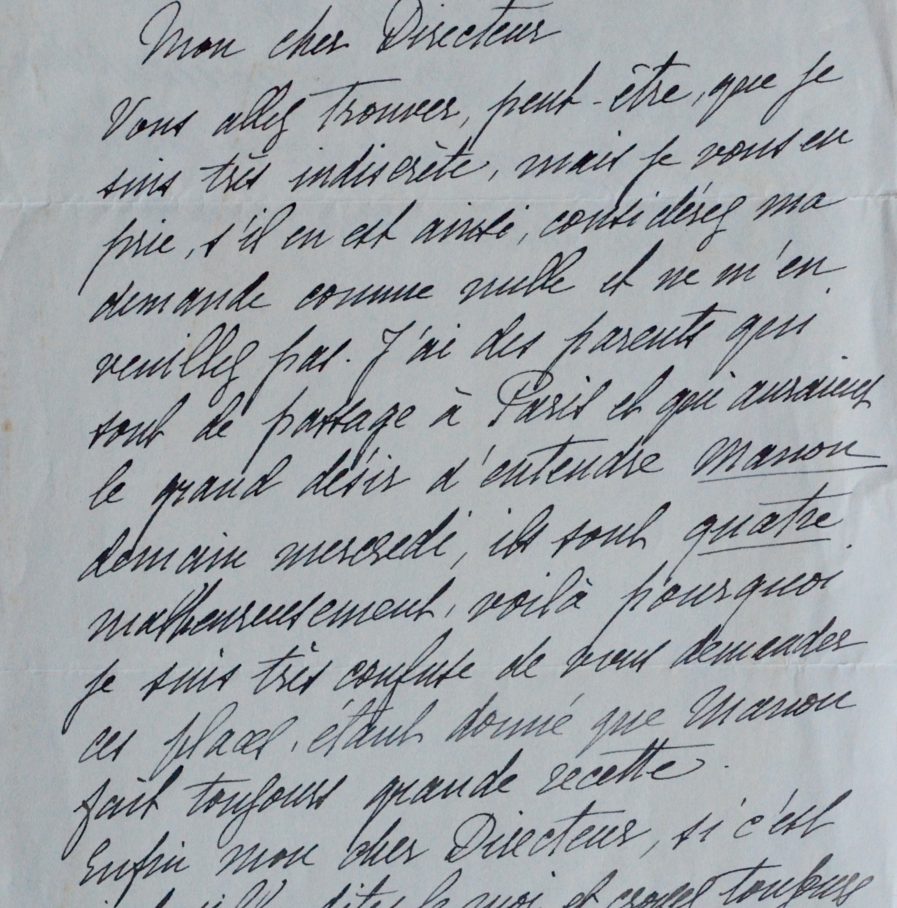 Mon cher Directeur
Vous allez trouver, peut-être, que je
suis très indiscrète, mais je vous en
prie, s'il en est ainsi, considérez ma
demande comme nulle et ne m'en
veuillez pas. J'ai des parents qui
sont de passage à Paris et qui auraient
le grand désir d'entendre Manon
demain mercredi, ils sont quatre
malheureusement, voilà pourquoi
je suis très confuse de vous demander
ces places, étant donné que Manon
fait toujours grande recette.
Enfin mon cher Directeur, si c'est
dites le moi et croyez toujours